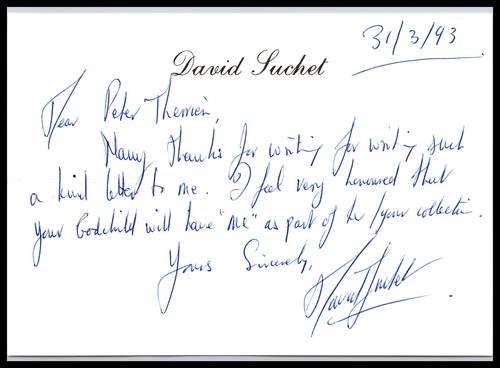 31/3/93
David Suchet
Dear Peter Therrien,
Many thanks for writing for writing such
a kind letter to me. I feel very honoured that
your Godchild will have "me" as part of her/your collection.
Yours Sincerely,
David Suchet